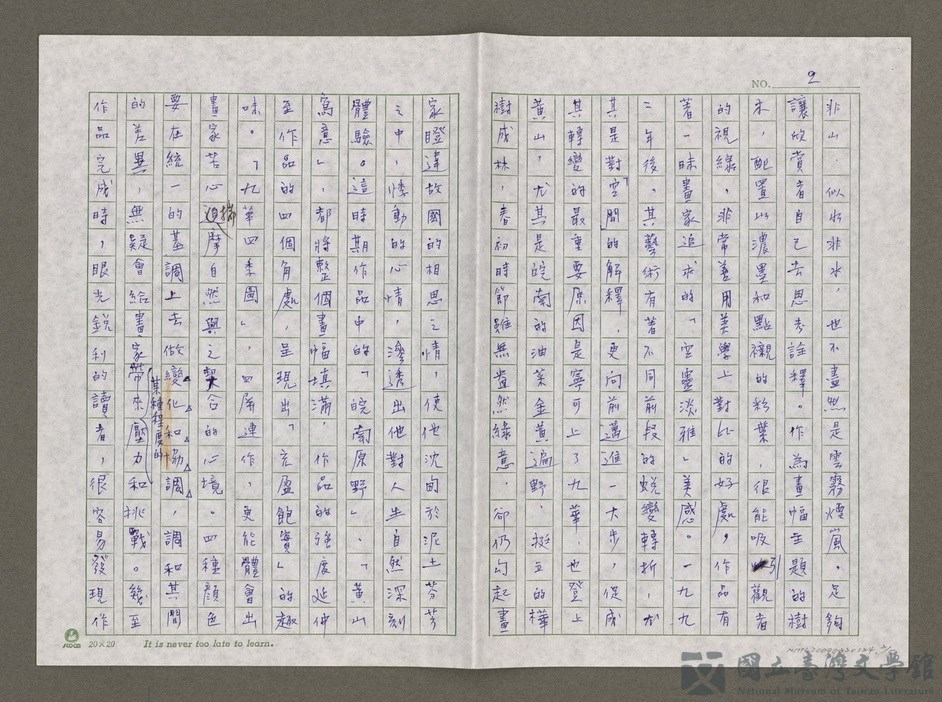 NO. 2
非山、似水非水,也不盡然是雲霧煙嵐。足夠
讓欣賞者自己去思考詮釋。作為畫幅主題的樹
木,配置以濃墨和點襯的彩葉,很能吸引觀者
的視線,非常善用美學上對比的好處,作品有
著一昧畫家追求的「空靈淡雅」美感。一九九
二年後,其藝術有著不同前段的蛻變轉折,尤
其是對空間的解釋,更向前邁進一大步,促成
其轉變的最重要原因是寧可上了九華,也登上
黃山,尤其是皖南的油菜金黃遍野,挺立的樺
樹成林,春初時節雖無盎然綠意,卻仍勾起畫
家睽違故國的相思之情,使他沈甸於泥土芬芳
之中,悸動的心情,滲透出他對人生自然深刻
體驗。這時期作品中的「皖南原野」、「黃山
寫意」,都將整個畫幅填滿,作品的強度延伸
至作品的四個角處,呈現出「充盈飽實」的趣
味。「九華四季圖」,四屏連作,更能體會出
畫家苦心揣摩自然與之契合的心境。四種顏色
要在統一的基調上去做變化和協調,調和其間
的差異,無疑會給畫家帶來壓力和挑戰。幾至
某種程度的
作品完成時,眼光銳利的讀者,很容易發現作
20×20
It is never too late to learn.
國立臺灣文學館
National Museum of Taiwan Literature